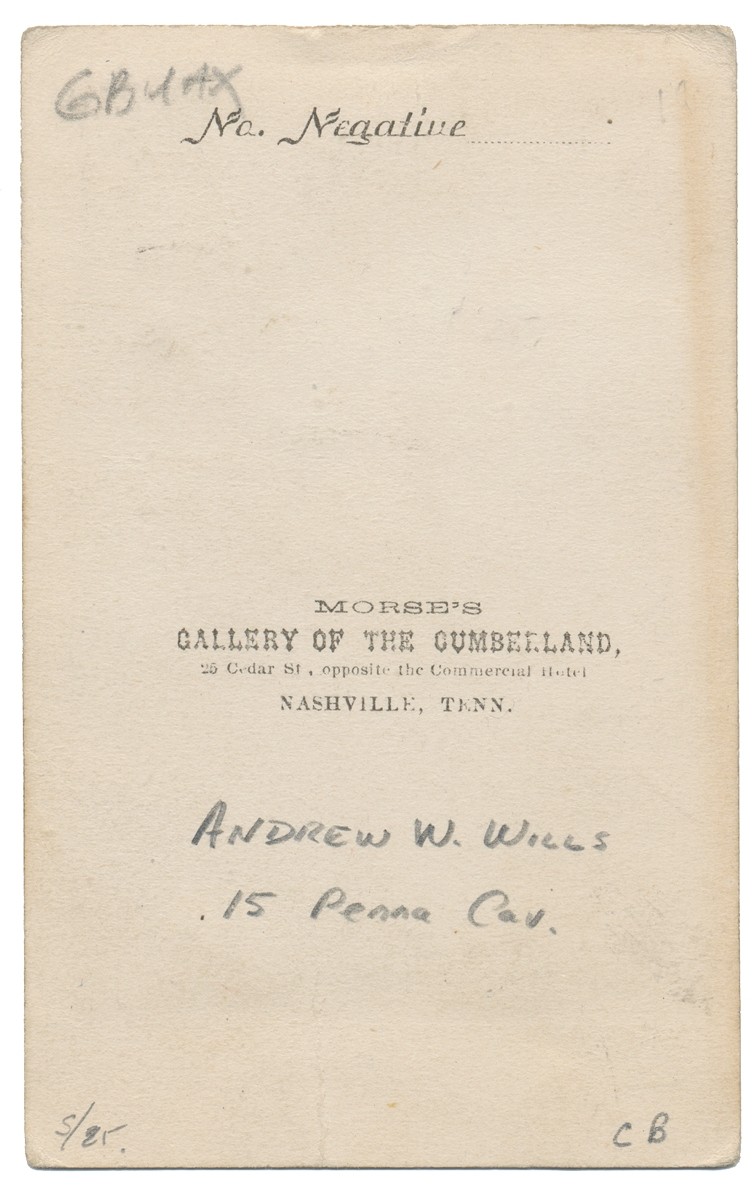 GB4AX
No. Negative
MORSE'S
GALLERY OF THE CUMBERLAND,
25 Cedar St., opposite the Commercial Hotel
NASHVILLE, TENN.
ANDREW W. WILLS
15 Penna Cav.
5/25.
C B